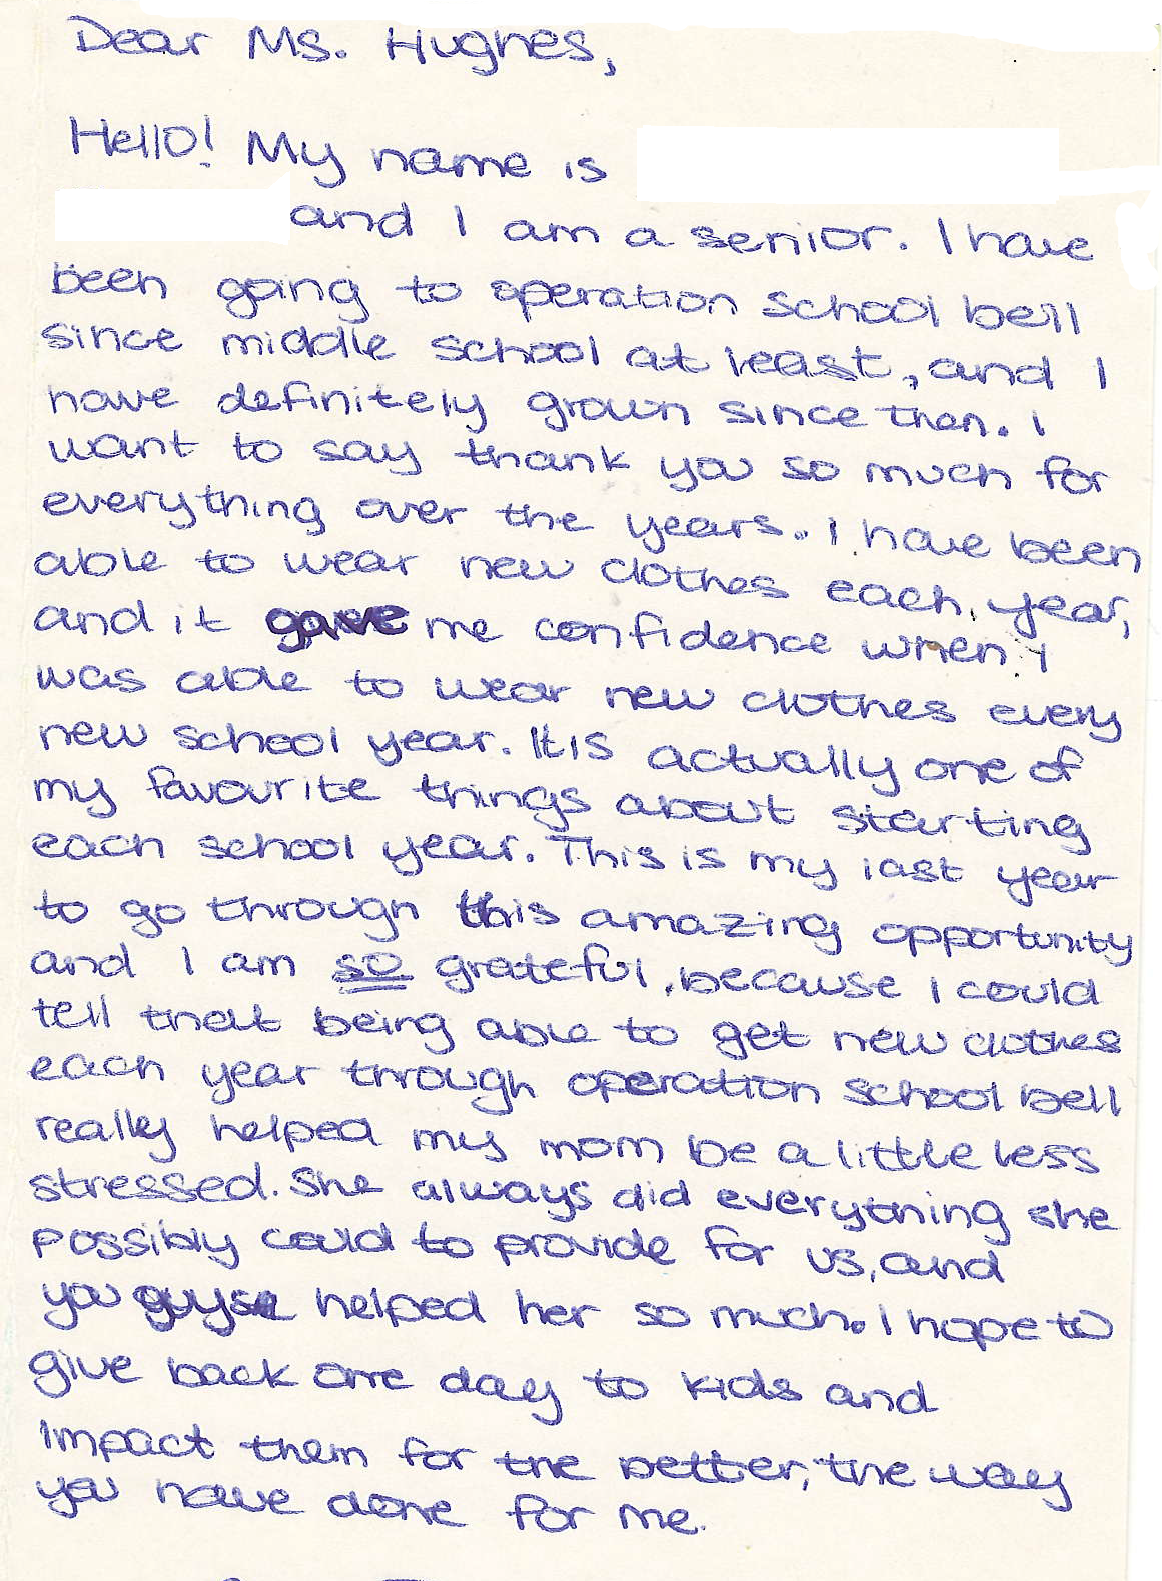 Dear Ms. Hughes,
Hello! My name is
and I am a senior. I have
been going to operation school bell
since middle school at least, and I
have definitely grown since then. I
want to say thank you so much for
everything over the years. I have been
able to wear new clothes each year,
and it gave me confidence when I
was able to wear new clothes every
new school year. It is actually one of
my favourite things about starting
each school year. This is my last year
to go through this amazing opportunity
and I am so grateful, because I could
tell that being able to get new clothes
each year through operation school bell
really helped my mom be a little less
stressed. She always did everything she
possibly could to provide for us, and
you guys helped her so much. I hope to
give back one day to kids and
impact them for the better, the way
you have done for me.